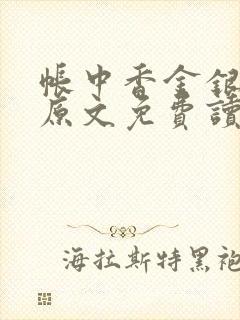 帳中香金銀
原文免費讀
海拉斯特黑袍